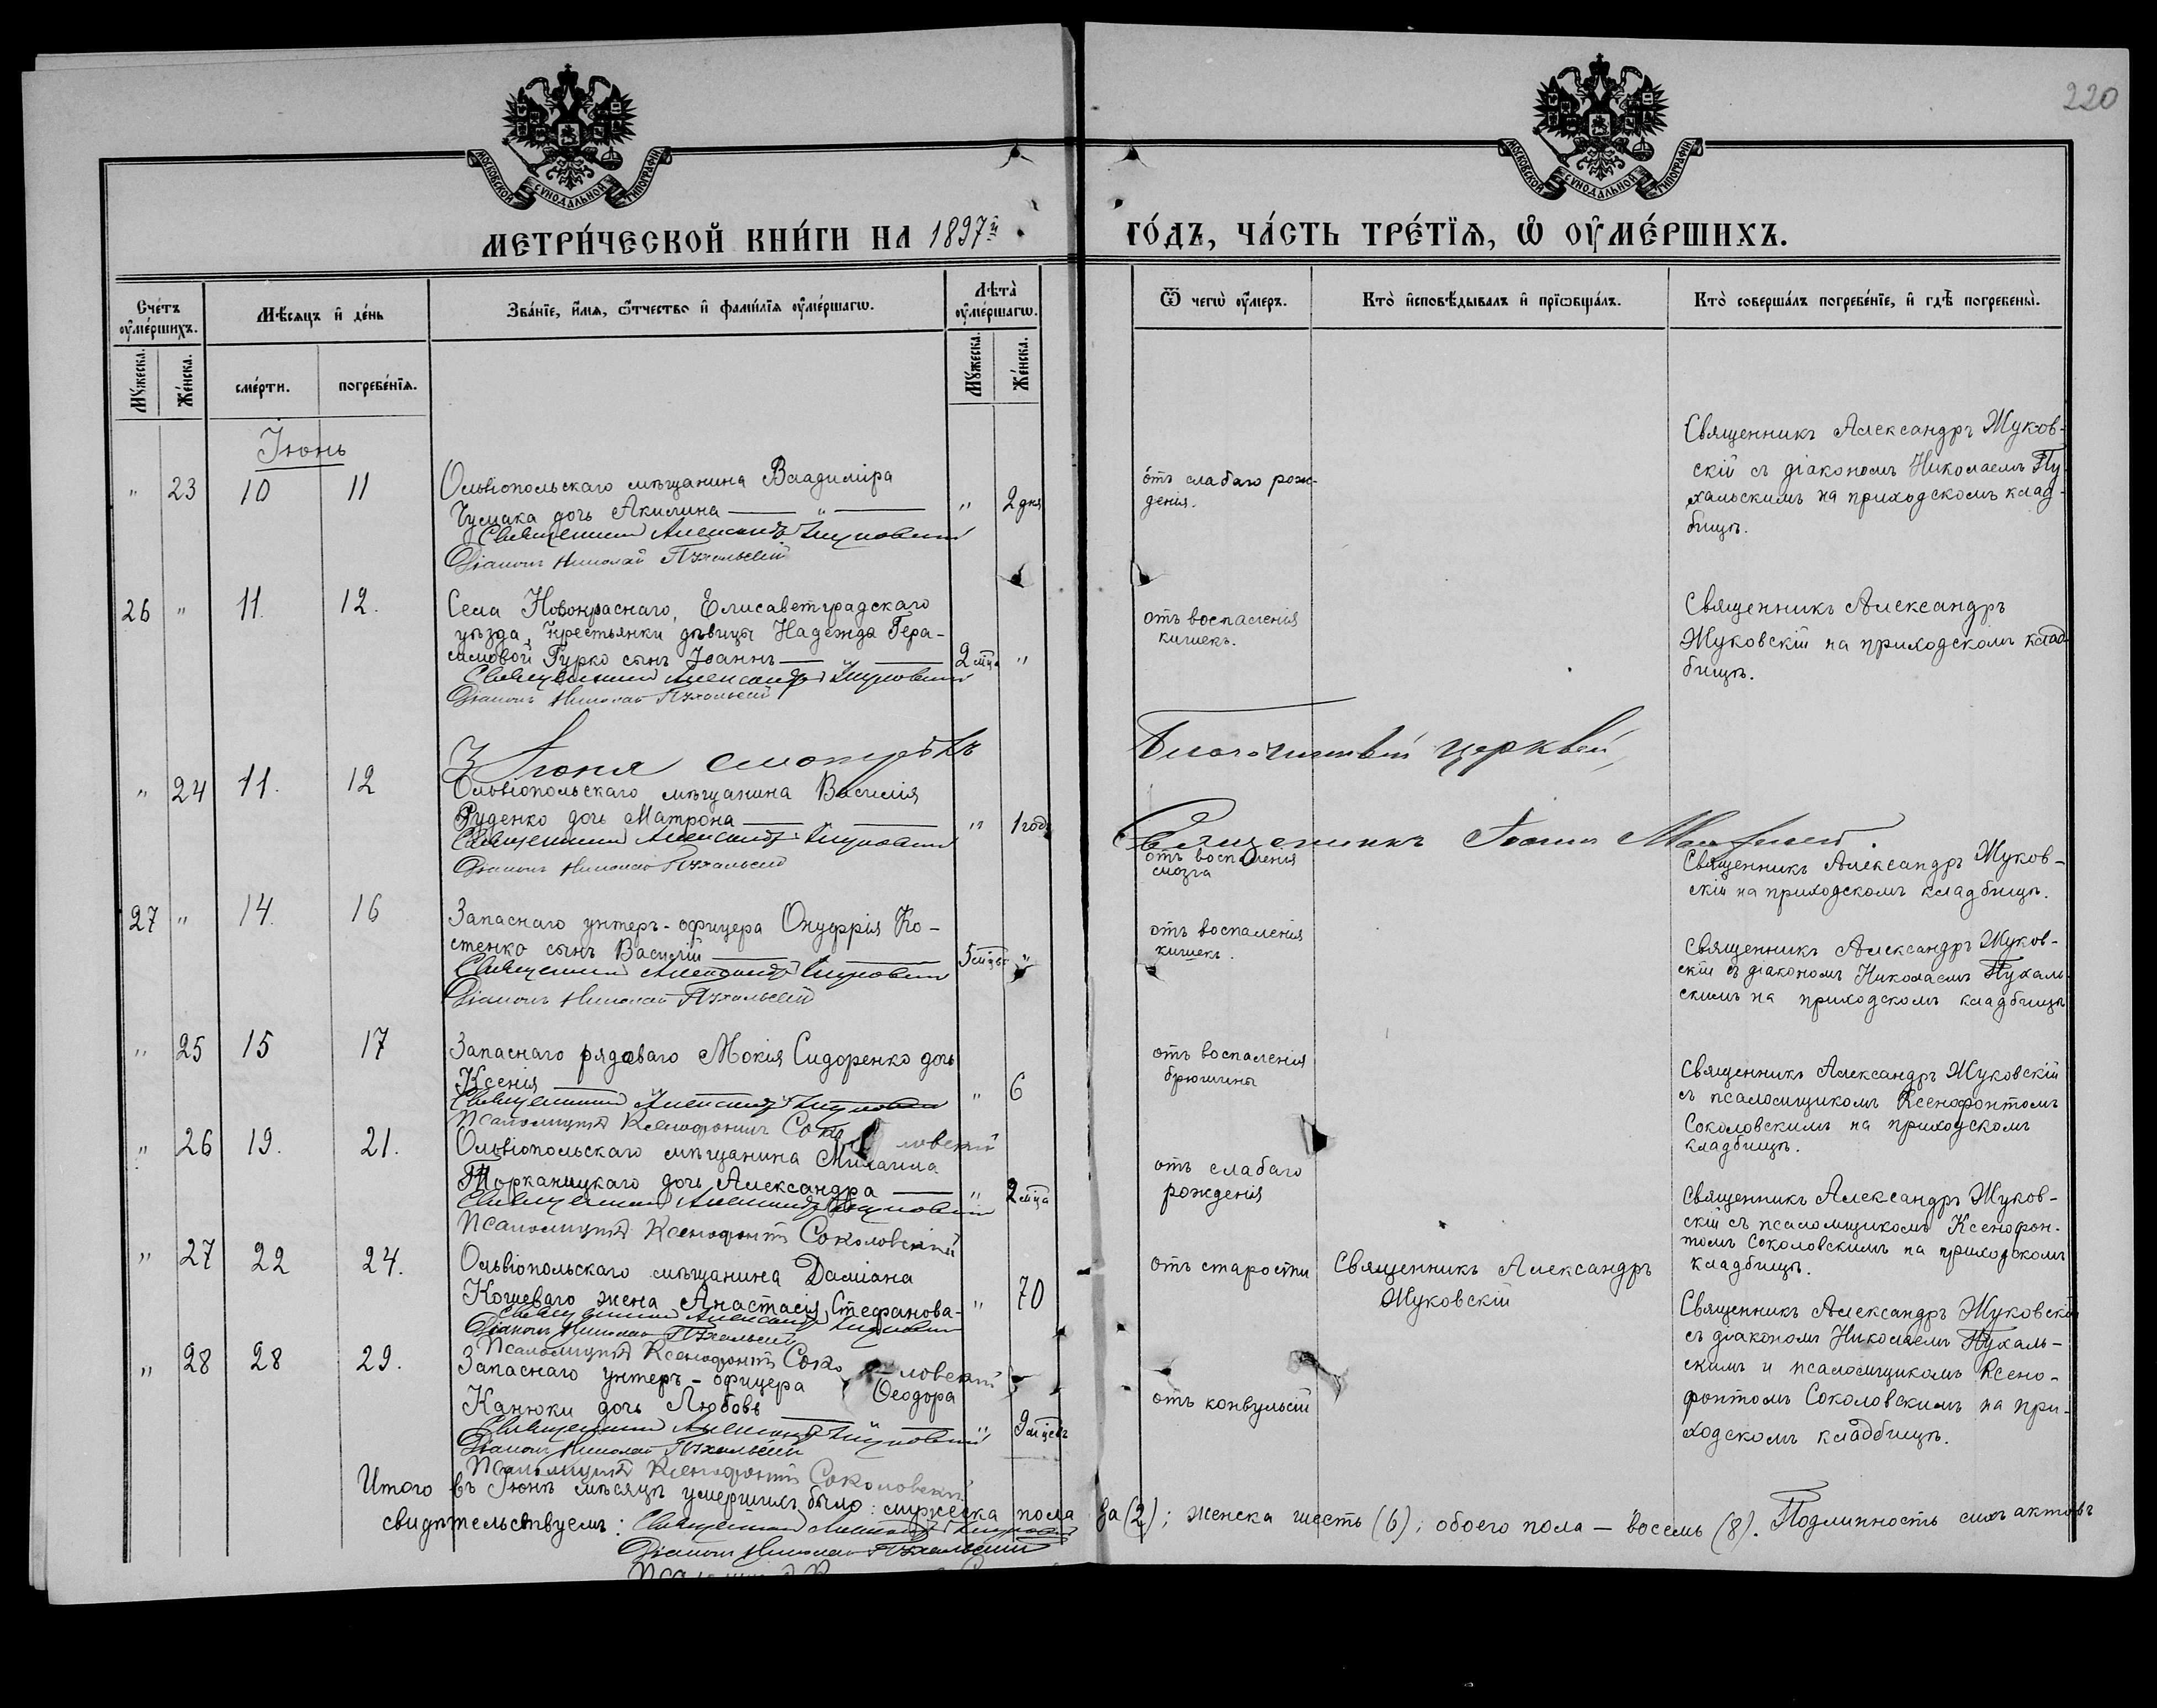 220
МОСКОВСКОЙ СѴНОДАЛЬНОЙ ТИПОГРАФІИ
МОСКОВСКОЙ СѴНОДАЛЬНОЙ ТИПОГРАФІИ
МЕТРИ́ЧЕСКОЙ КНИ́ГИ НА 1897й ГО́ДЪ, ЧА́СТЬ ТРЕ́ТЇѦ, Ѡ҆ ОУ҆МЕ́РШИХЪ.
Сче́тъ оу҆ме́ршихъ.
Мѣ́сяцъ и҆ де́нь
Зва́нїе, и҆́мѧ, ѻ҆́тчество и҆ фамі́лїѧ оу҆ме́ршагѡ.
Лѣ́та̀ оу҆ме́ршагѡ.
Ѿ чегѡ̀ оу҆́меръ.
Кто̀ и҆сповѣ́дывалъ и҆ прїѡбща́лъ.
Кто̀ соверша́лъ погребе́нїе, и҆ гдѣ̀ погребены̀.
Мꙋ́жеска.
Же́нска.
сме́рти.
погребе́нїѧ.
Мꙋ́жеска.
Же́нска.
Іюнь
" 23 10 11
Ольвіопольскаго мѣщанина Владиміра
Чумака дочь Акилина — " —
" 2 дня
Священникъ Александръ Жуковскій
Діаконъ Николай Пухальскій
отъ слабаго рож-
денія.
Священникъ Александръ Жуков-
скій съ діакономъ Николаемъ Пу-
хальскимъ на приходскомъ клад-
бищѣ.
26 " 11. 12.
Села Новокраснаго, Елисаветградскаго
уѣзда, крестьянки дѣвицы Надежда Гера-
симовой Гурко сынъ Іоаннъ — " —
2 мѣца "
Священникъ Александръ Жуковскій
Діаконъ Николай Пухальскій
отъ воспаленія
кишекъ.
Священникъ Александръ
Жуковскій на приходскомъ клад-
бищѣ.
Іюня смотрѣлъ Благочинный церквей,
Священникъ Іоаннъ
" 24 11. 12
Ольвіопольскаго мѣщанина Василія
Руденко дочь Матрона — " —
" 1 годъ
Священникъ Александръ Жуковскій
Діаконъ Николай Пухальскій
отъ воспаленія
мозга
Священникъ Александръ Жуков-
скій на приходскомъ кладбищѣ.
27 " 14. 16
Запаснаго унтеръ-офицера Онуфрія Ко-
стенко сынъ Василій — " —
5 мѣцъ "
Священникъ Александръ Жуковскій
Діаконъ Николай Пухальскій
отъ воспаленія
кишекъ.
Священникъ Александръ Жуков-
скій съ діакономъ Николаемъ Пухаль-
скимъ на приходскомъ кладбищѣ
" 25 15 17
Запаснаго рядоваго Мокія Сидоренко дочь
Ксенія — " —
" 6
Священникъ Александръ Жуковскій
Псаломщикъ Ксенофонтъ Соколовскій
отъ воспаленія
брюшины
Священникъ Александръ Жуковскій
съ псаломщикомъ Ксенофонтомъ
Соколовскимъ на приходскомъ
кладбищѣ.
" 26 19. 21.
Ольвіопольскаго мѣщанина Михаила
Торканицкаго дочь Александра —
" 2 мѣца
Священникъ Александръ Жуковскій
Псаломщикъ Ксенофонтъ Соколовскій
отъ слабаго
рожденія
Священникъ Александръ Жуков-
скій съ псаломщикомъ Ксенофон-
томъ Соколовскимъ на приходскомъ
кладбищѣ.
" 27 22 24.
Ольвіопольскаго мѣщанина Даміана
Кошеваго жена Анастасія Стефанова-
" 70
Священникъ Александръ Жуковскій
Діаконъ Николай Пухальскій
Псаломщикъ Ксенофонтъ Соколовскій
отъ старости
Священникъ Александръ
Жуковскій
Священникъ Александръ Жуковскій
съ діакономъ Николаемъ Пухаль-
скимъ и псаломщикомъ Ксено-
фонтомъ Соколовскимъ на при-
ходскомъ кладбищѣ.
" 28 28 29.
Запаснаго унтеръ-офицера Ѳеодора
Канюки дочь Любовь — " —
" 9 мѣцевъ
Священникъ Александръ Жуковскій
Діаконъ Николай Пухальскій
Псаломщикъ Ксенофонтъ Соколовскій
отъ конвульсій
Итого въ Іюнѣ мѣсяцѣ умершихъ было: мужеска пола два (2); женска шесть (6); обоего пола — восемь (8). Подлинность сихъ актовъ
свидѣтельствуемъ: Священникъ Александръ Жуковскій
Діаконъ Николай Пухальскій